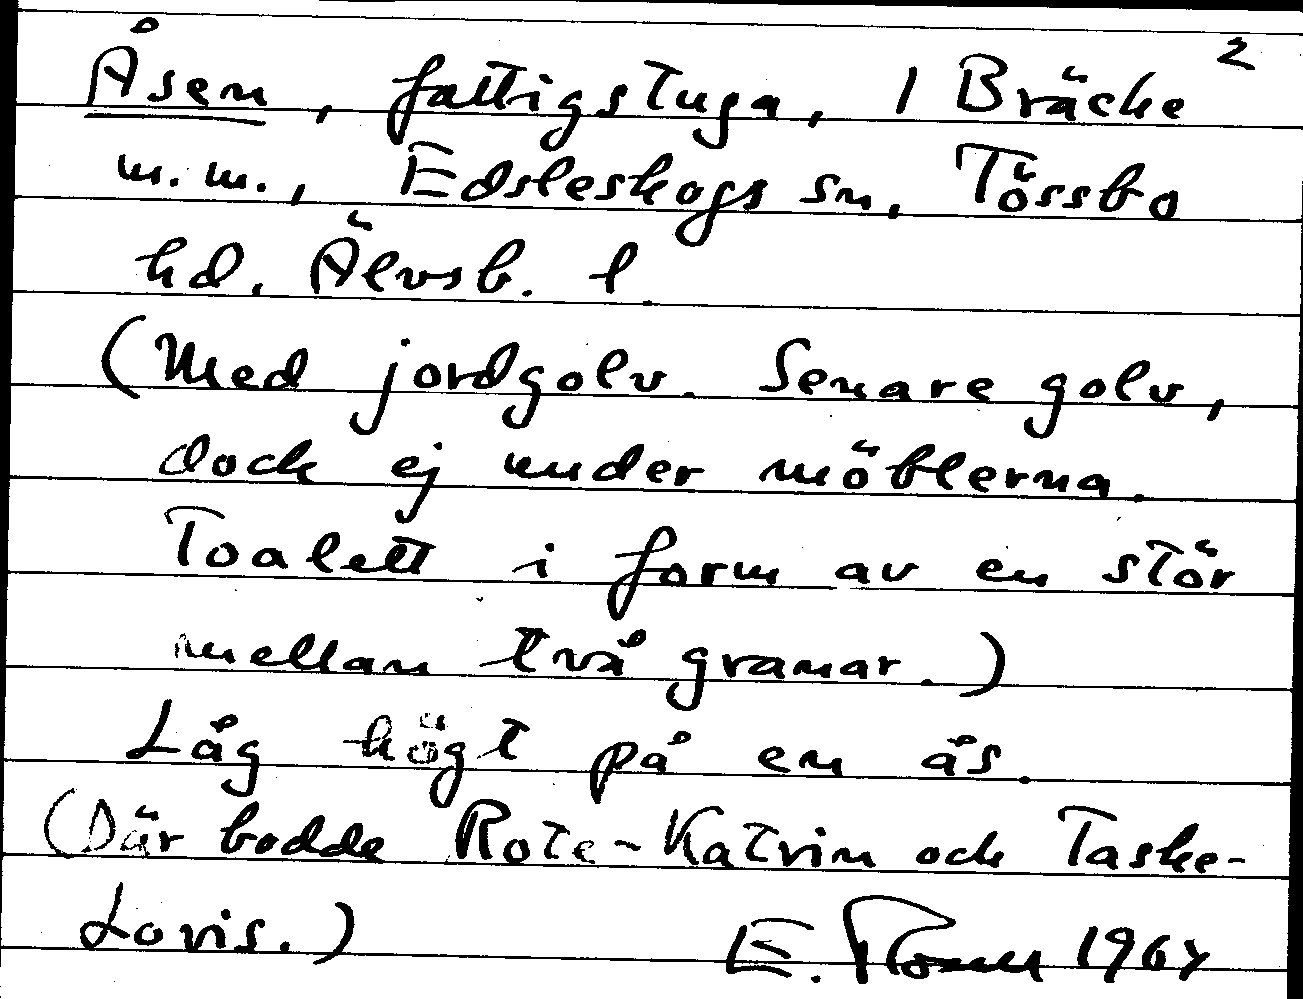 2
Åsen, fattigstuga, 1 Bräcke
m.m., Edsleskogs sn, Tössbo
hd. Älvsb. l.
(Med jordgolv. Senare golv,
dock ej under möblerna.
Toalett i form av en stör
mellan två granar.)
Låg högt på en ås.
(Där bodde Rote-Katrin och Taske-
Lovis.)
E.